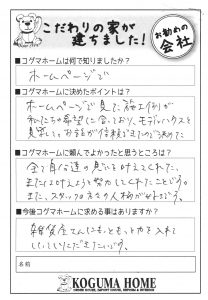 こだわりの家が
建ちました!
お勧めの
会社
■コグマホームは何で知りましたか?
ホームページで
■コグマホームに決めたポイントは?
ホームページで見た施工例が
私たちの希望に合っており、モデルハウスを
見学して、お客が信頼できるので決めた
■コグマホームに頼んでよかったと思うところは?
全て自分達の思いを叶えてくれた、
また叶えようと努力してくれたところです。
また、スタッフの方々の人柄がよかったです。
■今後コグマホームに求める事はありますか?
雑貨屋さんにも、もっと力を入れて
いただきたいです。
名前
KOGUMA HOME